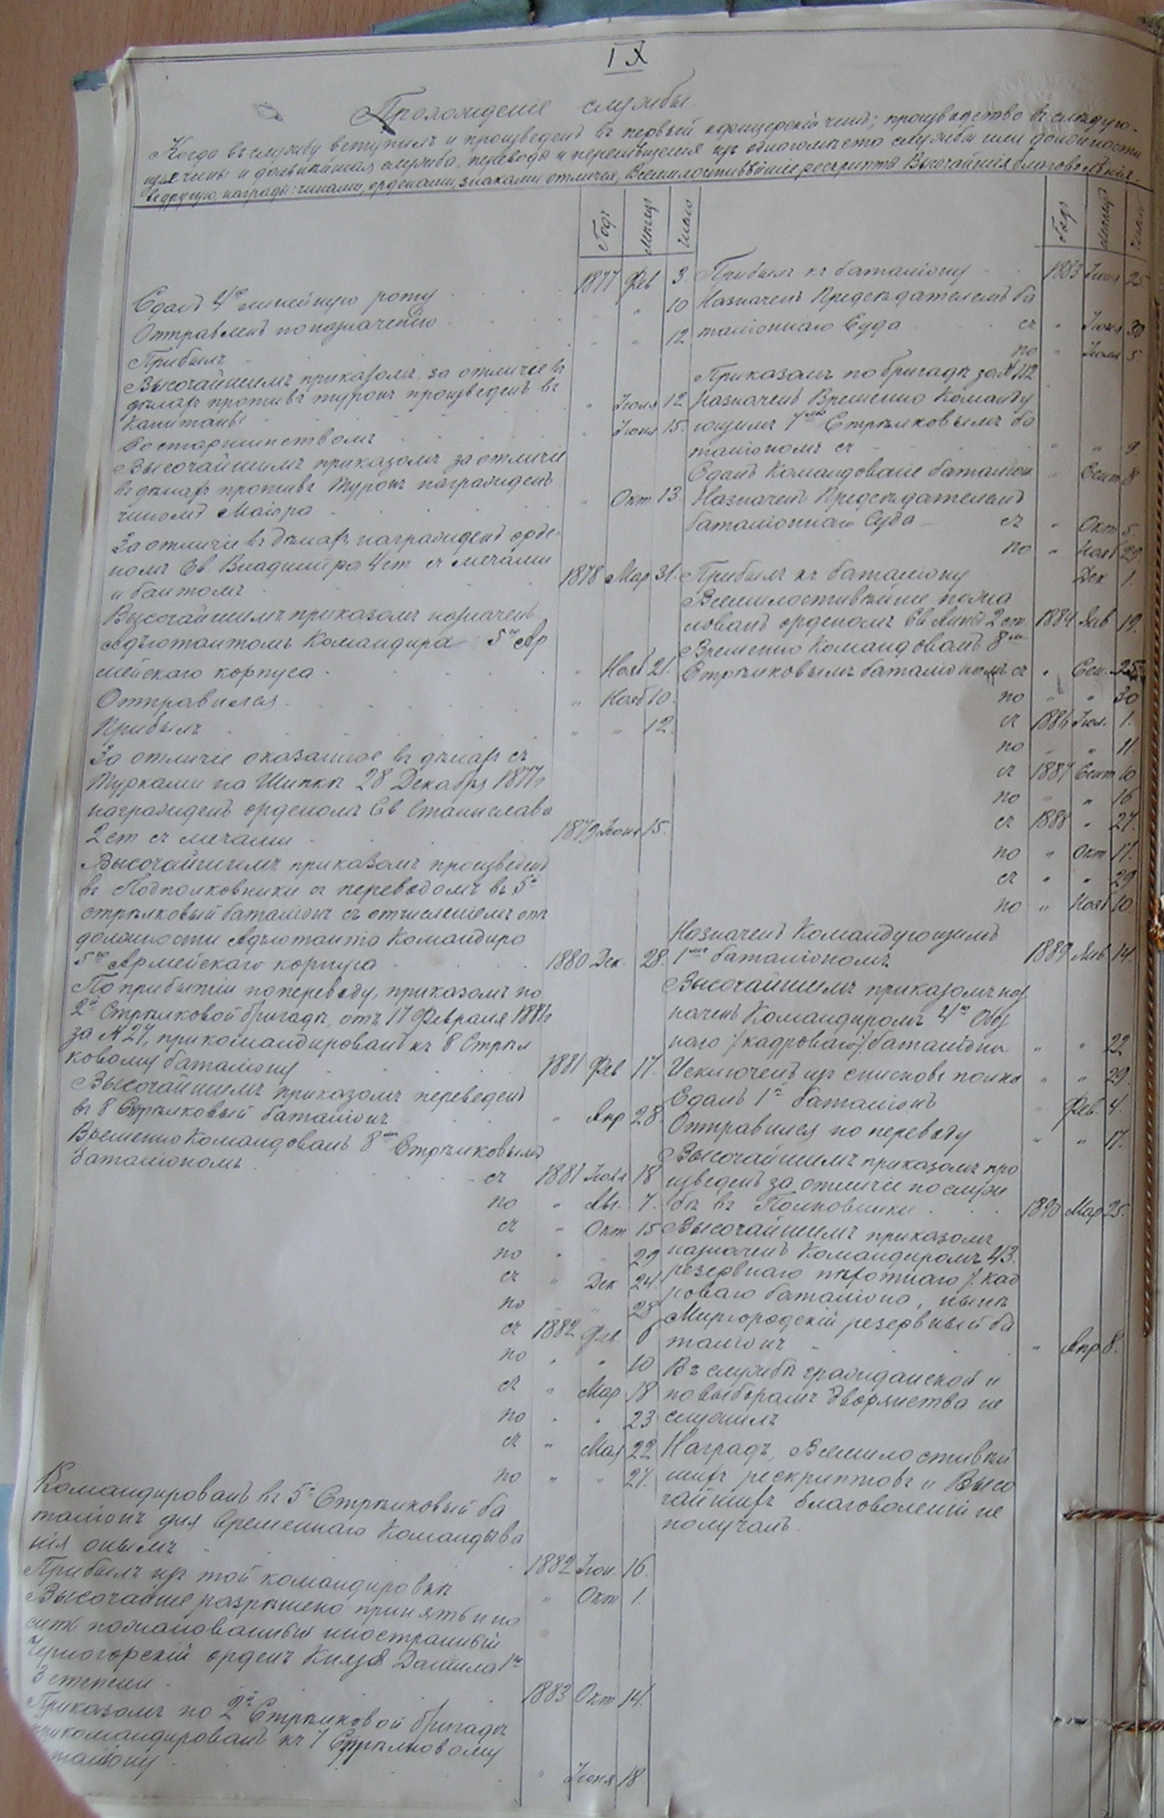 IX
Прохожденіе службы
Когда въ службу вступилъ и произведенъ въ первый офицерскій чинъ; производство въ слѣдую-
щіе чины и дальнѣйшая служба, переводы и перемѣщенія изъ одного мѣста службы или должности
въ другую, награды: чинами, орденами, знаками отличія, Всемилостивѣйшіе рескрипты Высочайшія благоволѣнія.
Годъ Мѣсяцъ Число
Сдалъ 4ю линейную роту 1877 Фев 3
Отправленъ по назначенію " 10
Прибылъ " " 12
Высочайшимъ приказомъ за отличіе въ
дѣлахъ противъ турокъ произведенъ въ
Капитаны " Іюля 12
Со старшинствомъ " Іюня 15.
Высочайшимъ приказомъ за отличіе
въ дѣлахъ противъ Турокъ награжденъ
чиномъ Маіора " Окт 13
За отличіе въ дѣлахъ награжденъ орде-
номъ Св Владиміра 4 ст съ мечами
и бантомъ 1878 Мар 31.
Высочайшимъ приказомъ назначенъ
Адъютантомъ Командира 5го Ар
мейскаго корпуса " Нояб 21.
Отправился " Нояб 10.
Прибылъ " " 12.
За отличіе оказанное въ дѣлахъ съ
Турками на Шипкѣ 28 Декабря 1877г
награжденъ орденомъ Св Станислава
2 ст съ мечами 1879 Іюня 15.
Высочайшимъ приказомъ произведенъ
въ Подполковники съ переводомъ въ 5й
стрѣлковый баталіонъ съ отчисленіемъ отъ
должности Адъютанта Командира
5го Армейскаго корпуса 1880 Дек. 28.
По прибытіи по переводу, приказомъ по
2й Стрѣлковой бригадѣ, отъ 17 Февраля 1881г
за № 27, прикомандированъ къ 8 Стрѣл
ковому баталіону 1881 Фев 17.
Высочайшимъ приказомъ переведенъ
въ 8 Стрѣлковый баталіонъ " Апр 28.
Временно Командовалъ 8мъ Стрѣлковымъ
баталіономъ
съ 1881 Іюля 18
по " Авг. 7.
съ " Окт 15
по " " 29
съ " Дек 24.
по " " 28
съ 1882 Фев. 6
по " " 10
съ " Мар 18
по " " 23
съ " Мая 22
по " " 27.
Командированъ въ 5й Стрѣлковый ба
таліонъ для временнаго Командова
нія онымъ 1882 Іюн. 16.
Прибылъ изъ той командировки " Окт 1.
Высочайше разрѣшено принять и но
сить пожалованный иностранный
Черногорскій орденъ Князя Даніила 1го
3 степени 1883 Окт 14.
Приказомъ по 2й Стрѣлковой бригадѣ
прикомандированъ къ 7 Стрѣлковому
баталіону " Іюня 18
Годъ Мѣсяцъ Число
Прибылъ къ баталіону 1883 Іюня 25
Назначенъ Предсѣдателемъ ба
таліоннаго Суда съ " Іюня 30
по " Іюля 5
Приказомъ по бригадѣ за № 112
назначенъ Временно Команду
ющимъ 7мъ Стрѣлковымъ ба
таліономъ съ " " 9
Сдалъ Командованіе баталіон " Сент 8
Назначенъ Предсѣдателемъ
баталіоннаго Суда съ " Окт 5.
по " Нояб 29.
Прибылъ къ баталіону Дек 1.
Всемилостивѣйше пожа
лованъ орденомъ Св Анны 2 ст 1884 Янв 19.
Временно Командовалъ 8мъ
Стрѣлковымъ баталіономъ съ " Сен. 25
по " " 30
съ 1886 Іюл. 1.
по " " 11
съ 1887 Сент 10
по " " 16
съ 1888 " 27.
по " Окт 17.
съ " " 29
по " Нояб 10
Назначенъ Командующимъ
1мъ баталіономъ 1889 Янв 14.
Высочайшимъ приказомъ наз
наченъ Командиромъ 4го
наго /кадроваго/ баталіона " " 22
Исключенъ изъ списковъ полка " " 29.
Сдалъ 1й баталіонъ " Фев. 4.
Отправился по переводу " " 17.
Высочайшимъ приказомъ про
изведенъ за отличіе по служ
бѣ въ Полковники 1890 Мар 25.
Высочайшимъ приказомъ
назначенъ Командиромъ 43.
резервнаго пѣхотнаго /кад
роваго баталіона, нынѣ
Миргородскій резервный ба
таліонъ " Апр 8.
Въ службѣ гражданской и
по выборамъ дворянства не
служилъ
Наградъ, Всемилостивѣй
шихъ рескриптовъ и Высо
чайшихъ благоволеній не
получалъ.